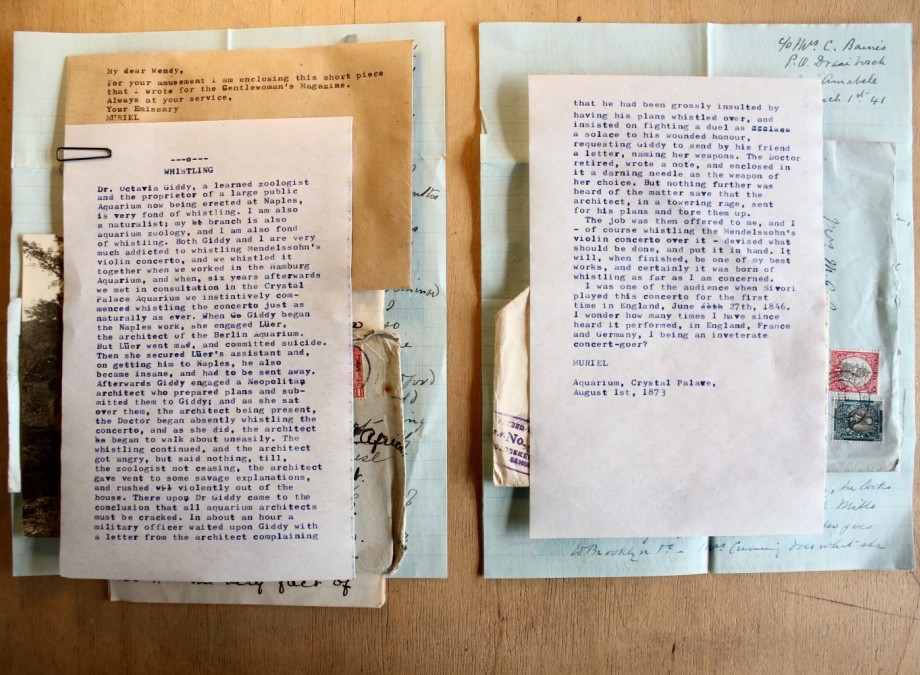 My dear Wendy,
For your amusement I am enclosing this short piece
that I wrote for the Gentlewoman's Magazine.
Always at your service,
Your Emissary
MURIEL
---o---
WHISTLING
Dr. Octavia Giddy, a learned zoologist
and the proprietor of a large public
Aquarium now being erected at Naples,
is very fond of whistling. I am also
a naturalist; my branch is also
aquarium zoology, and I am also fond
of whistling. Both Giddy and I are very
much addicted to whistling Mendelssohn's
violin concerto, and we whistled it
together when we worked in the Hamburg
Aquarium, and when, six years afterwards
we met in consultation in the Crystal
Palace Aquarium we instinctively com-
menced whistling the concerto just as
naturally as ever. When Giddy began
the Naples work, she engaged Lüer,
the architect of the Berlin Aquarium.
But Lüer went mad, and committed suicide.
Then she secured Lüer's assistant and,
on getting him to Naples, he also
became insane, and had to be sent away.
Afterwards Giddy engaged a Neopolitan
architect who prepared plans and sub-
mitted them to Giddy; and as she sat
over them, the architect being present,
the Doctor began absently whistling the
concerto, and as she did, the architect
began to walk about uneasily. The
whistling continued, and the architect
got angry, but said nothing, till,
the zoologist not ceasing, the architect
gave vent to some savage explanations,
and rushed violently out of the
house. There upon Dr Giddy came to the
conclusion that all aquarium architects
must be cracked. In about an hour a
military officer waited upon Giddy with
a letter from the architect complaining
Africa
very fact of
c/o Mrs C. Baines
P.O. Draaibosch
1st 41
that he had been grossly insulted by
having his plans whistled over, and
insisted on fighting a duel as
a solace to his wounded honour,
requesting Giddy to send by his friend
a letter, naming her weapons. The Doctor
retired, wrote a note, and enclosed in
it a darning needle as the weapon of
her choice. But nothing further was
heard of the matter save that the
architect, in a towering rage, sent
for his plans and tore them up.
The job was then offered to me, and I
- of course whistling the Mendelssohn's
violin concerto over it - devised what
should be done, and put it in hand. It
will, when finished, be one of my best
works, and certainly it was born of
whistling as far as I am concerned.
I was one of the audience when Sivori
played this concerto for the first
time in England, June 27th, 1846.
I wonder how many times I have since
heard it performed, in England, France
and Germany, I being an inveterate
concert-goer?
MURIEL
Aquarium, Crystal Palave,
August 1st, 1873
No.
he looks
Mills
goes
to Brooklyn
Mrs Cunning does what she